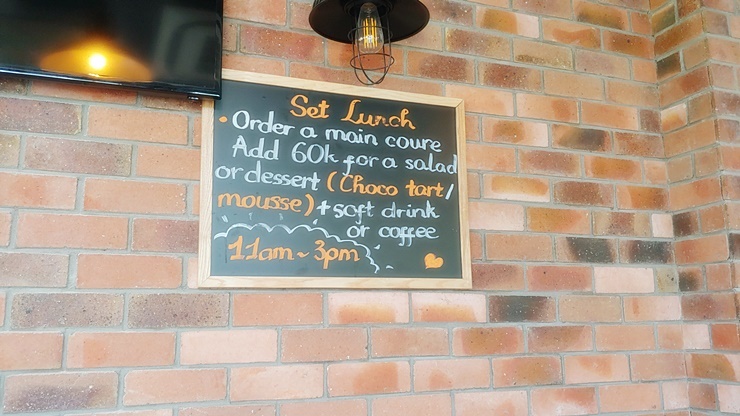 Set Lunch
• Order a main coure
Add 60k for a salad
or dessert (Choco tart/
mousse) + soft drink
or coffee
11am ~ 3pm